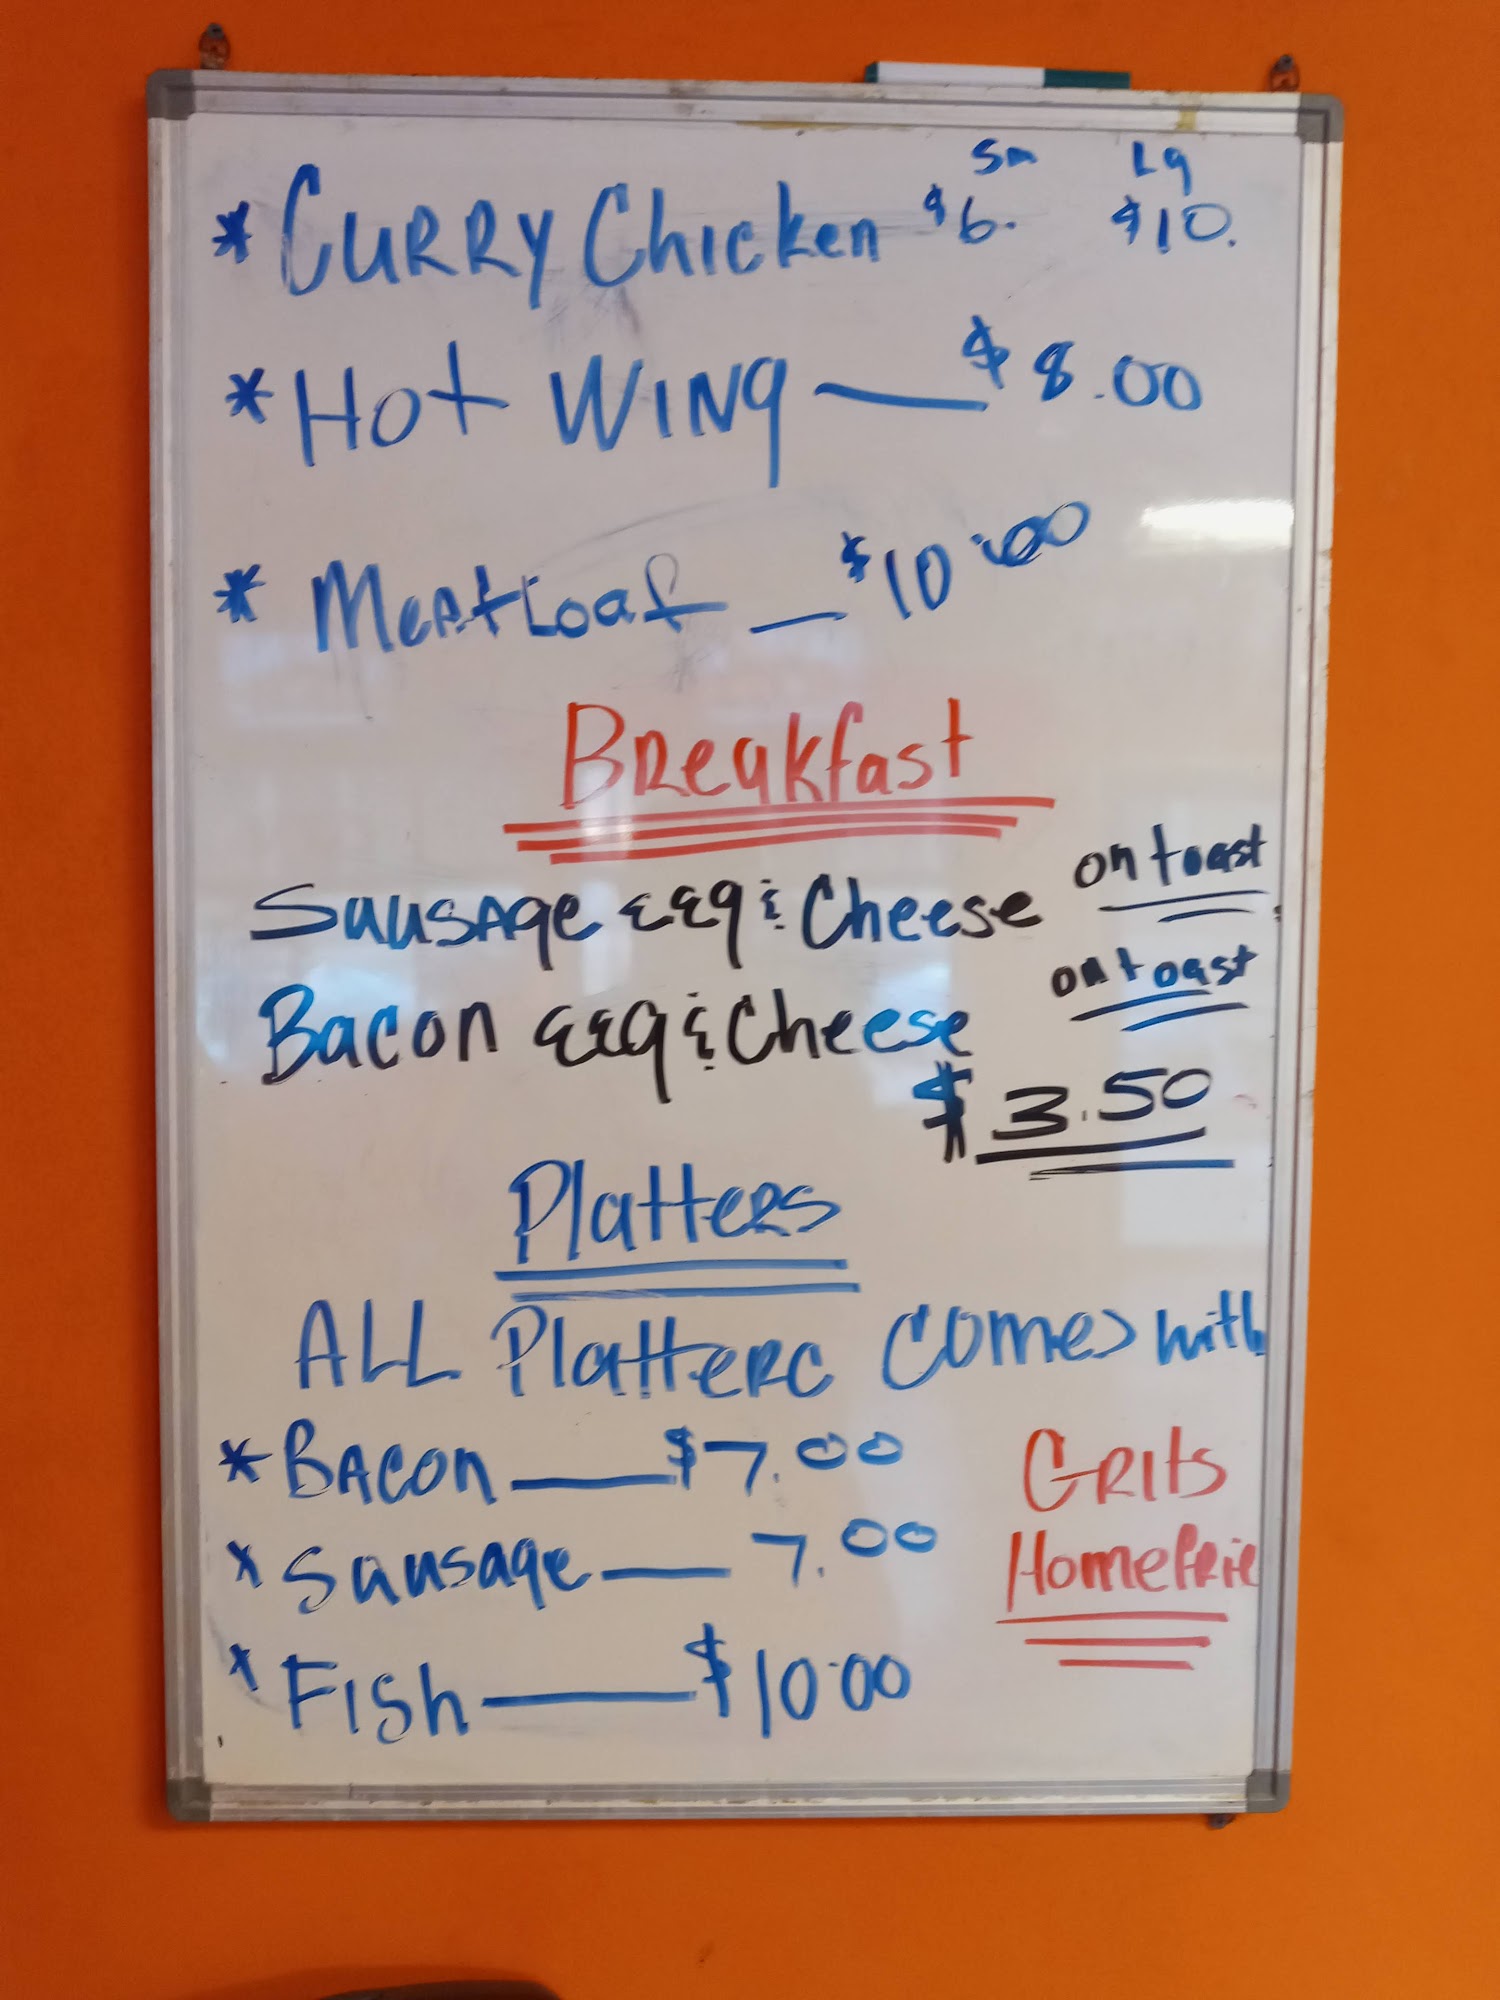 Sm Lg
* CURRY Chicken $6. $10.
* Hot WINg — $8.00
* MeAtLoaf — $10.00
Breakfast
SausAge EGG & Cheese on toast
Bacon EGG & Cheese on toast
$3.50
PlatteRS
ALL PlatteRC Comes with
* BAcon — $7.00 GRIts
* Sausage — 7.00 HomefRie
* FISh — $10.00